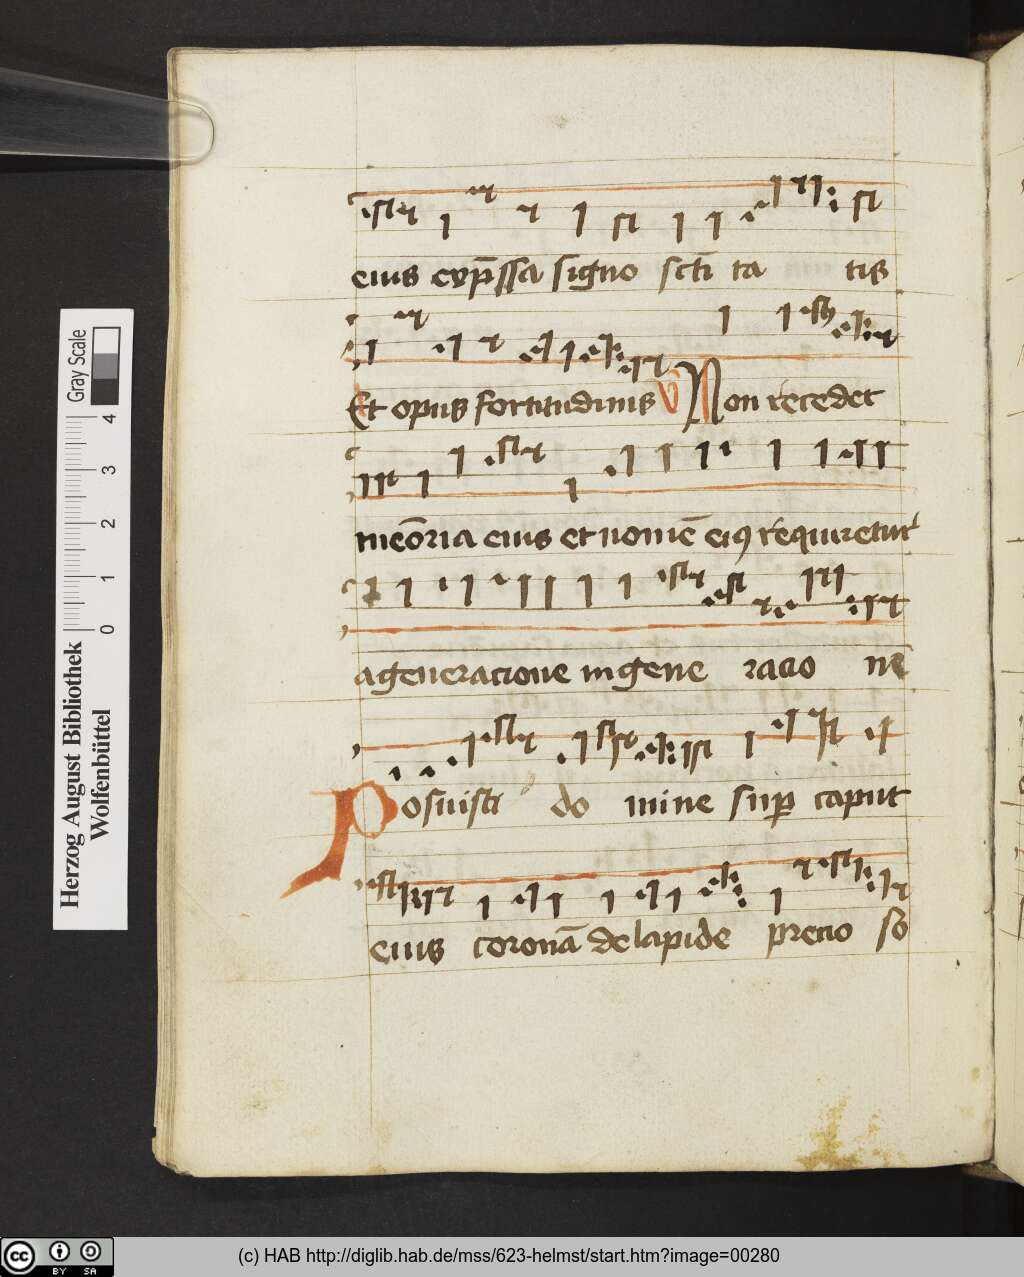 eius exp̄ssa signo sct̄i ta tis
Et opus fortitudinis V Non recedet
meōria eius et nomē eiꝯ requiretur
a generacione in gene racio nē
Posuisti do mine sup̄ caput
eius coronā de lapide precio so
Herzog August Bibliothek
Wolfenbüttel
Gray Scale
0 1 2 3 4
cc BY SA
(c) HAB http://diglib.hab.de/mss/623-helmst/start.htm?image=00280